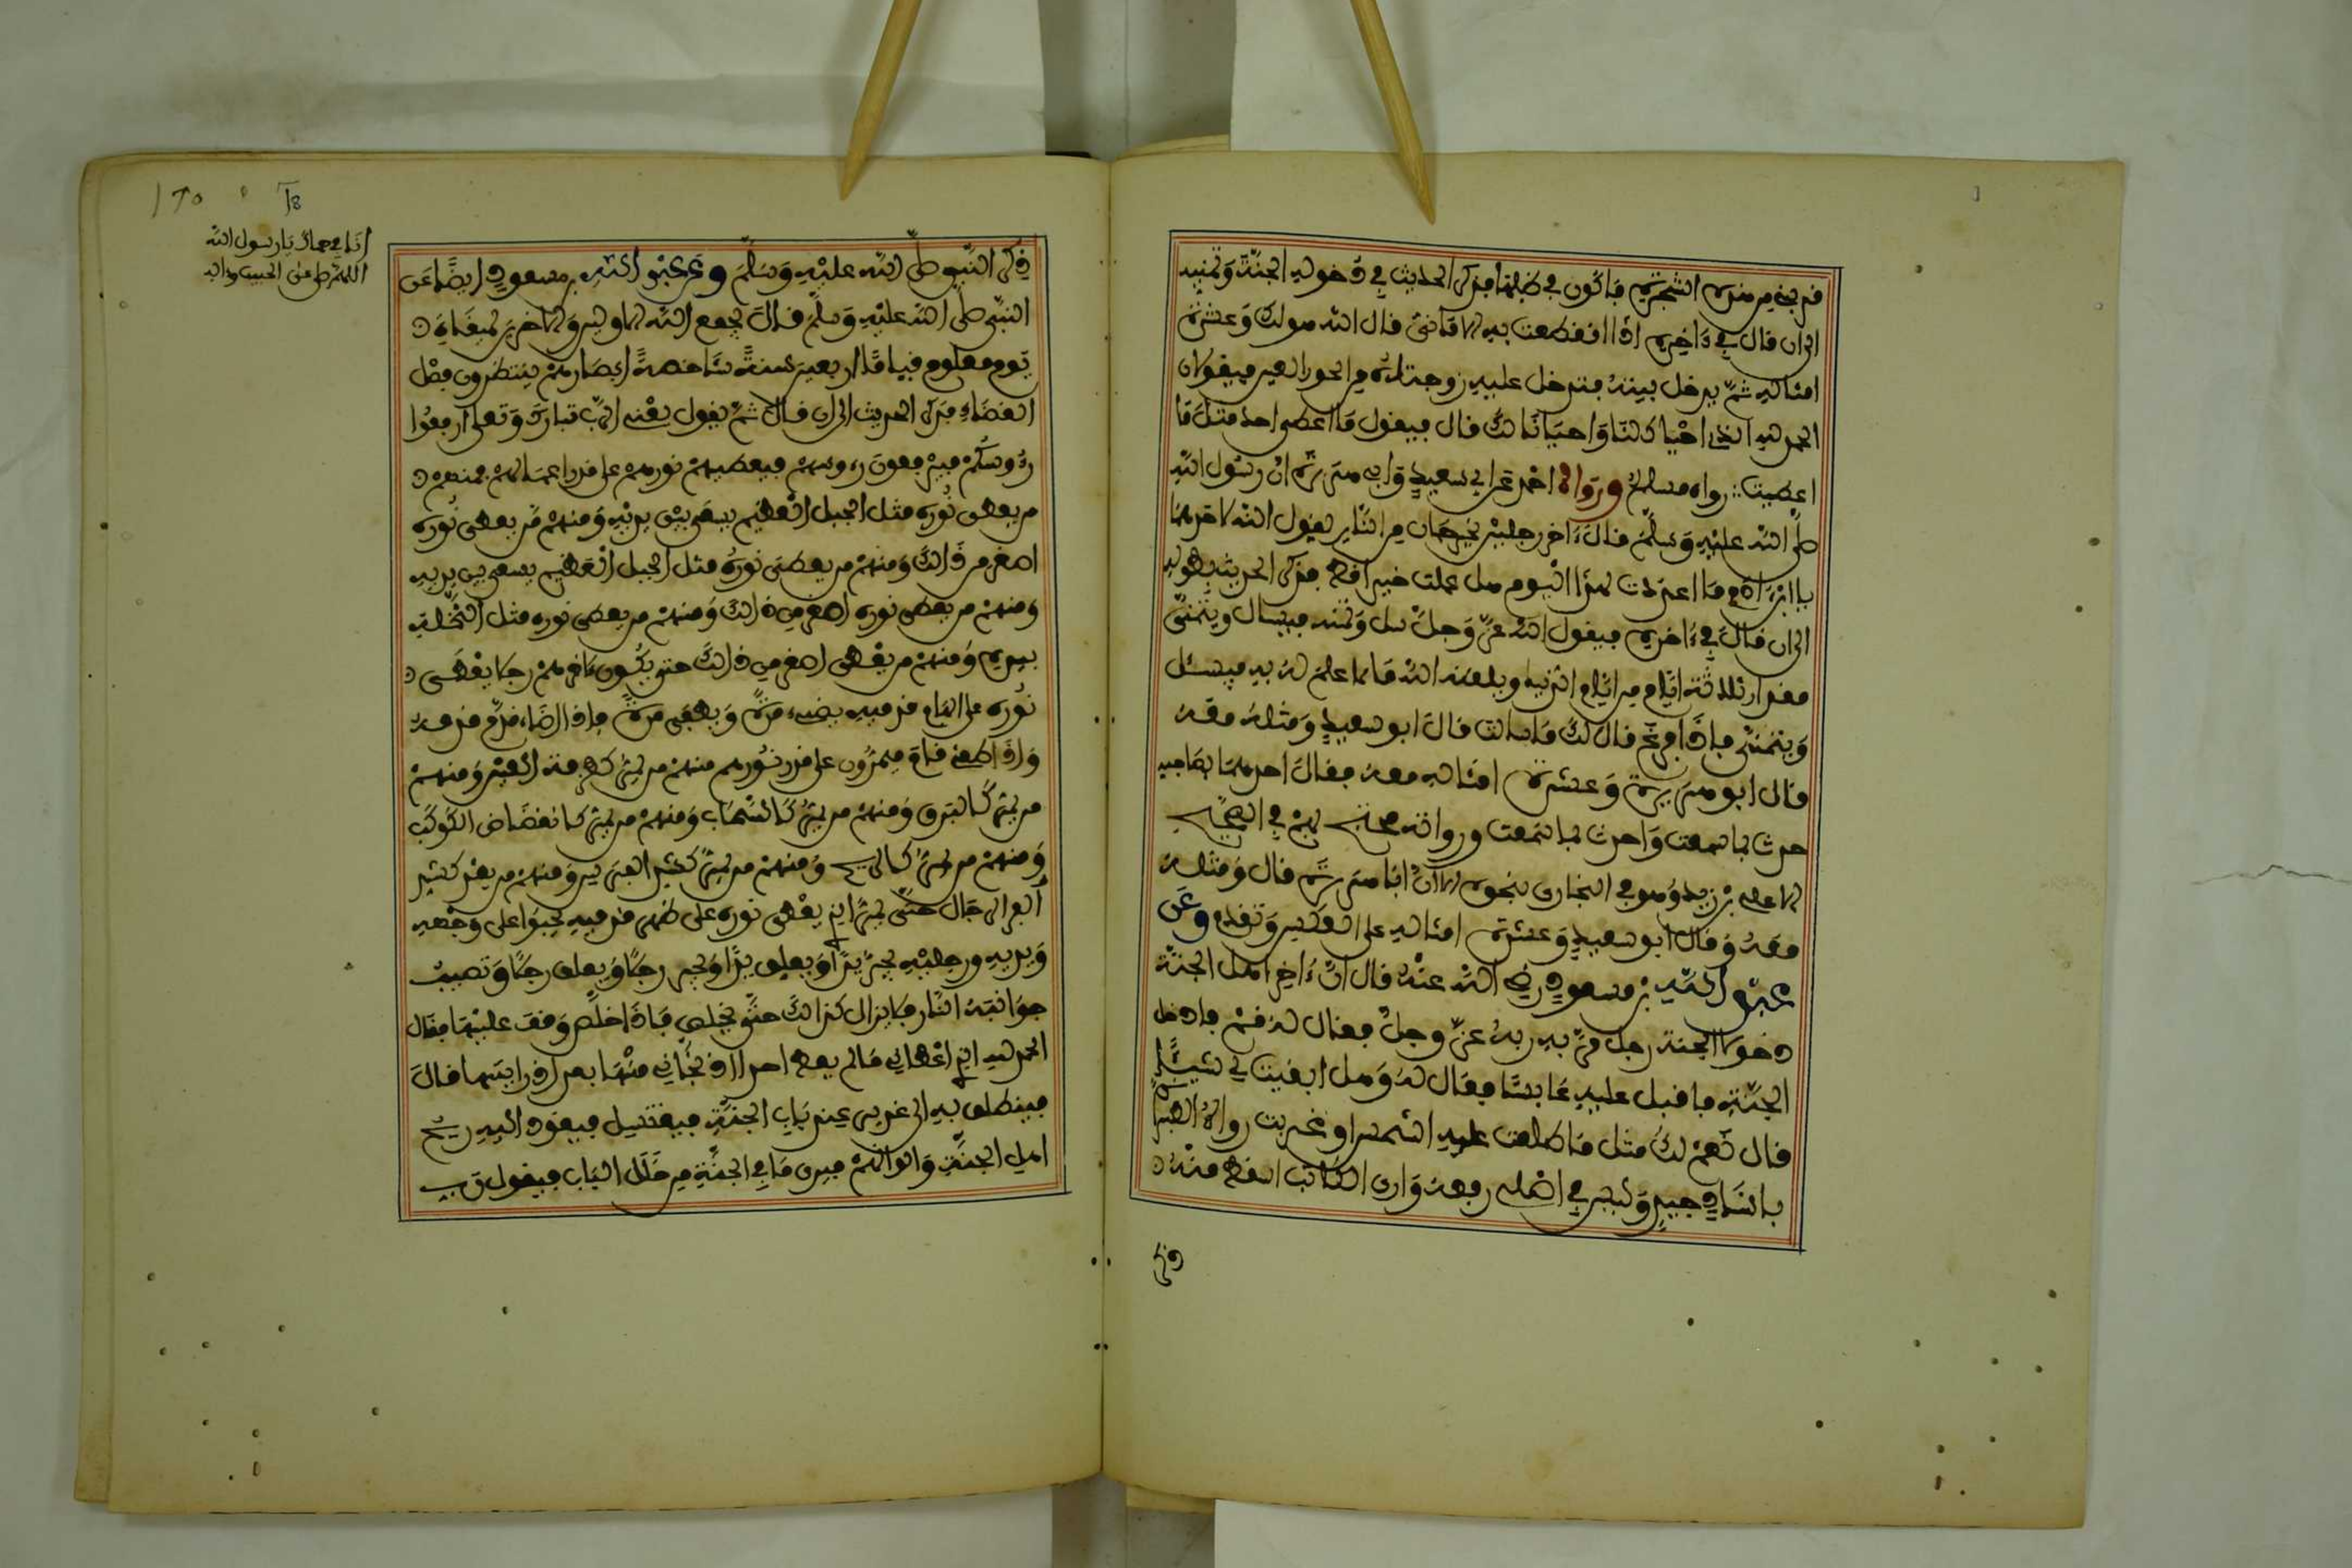 قربني من هذه الشجرة فاكون في ظلها فذكر الحديث في دخوله الجنة وتمنيه
الى ان قال في ءاخره اذا انقطعت به الاماني قال الله هو لك وعشرة
امثاله ثم يدخل بيته فتدخل عليه زوجتاه من الحور العين فيقولان
الحمد لله الذي احياك لنا واحيانا لك قال فيقول ما اعطي احد مثل ما
اعطيت رواه مسلم ورواه احمد عن ابي سعيد وابي هريرة ان رسول الله
صلى الله عليه وسلم قال ءاخر رجلين يخرجان من النار يقول الله لاحدهما
يا ابن ءادم ما اعددت لهذا اليوم هل عملت خيرا قط فذكر الحديث بطوله
الى ان قال في ءاخره فيقول الله عز وجل سل وتمنه فيسال ويتمنى
مقدار ثلاثة ايام من ايام الدنيا ويلقنه الله ما لا علم له به فيسئل
ويتمنى فاذا فرغ قال لك ما سالت قال ابو سعيد ومثله معه
قال ابو هريرة وعشرة امثاله معه فقال احدهما لصاحبه
حدث بما سمعت واحدث بما سمعت ورواته محتج بهم في الصحيح
الا علي بن زيد وهو في البخاري بنحوه الا ان ابا هريرة قال ومثله
معه وقال ابو سعيد وعشرة امثاله على العكس وتقدم وعن
عبد الله بن مسعود رضي الله عنه قال ان ءاخر اهل الجنة
دخولا الجنة رجل مر به ربه عز وجل فقال له قم فادخل
الجنة فاقبل عليه عابسا فقال له وهل ابقيت لي شيئا
قال نعم لك مثل ما طلعت عليه الشمس او غربت رواه الطبراني
باسناد جيد وليس في اصلي رفعه وارى الكاتب اسقط منه
ذكر
ذكر النبي صلى الله عليه وسلم وعن عبد الله بن مسعود ايضا عن
النبي صلى الله عليه وسلم قال يجمع الله الاولين والاخرين لميقات
يوم معلوم قياما اربعين سنة شاخصة ابصارهم ينتظرون فصل
القضاء فذكر الحديث الى ان قال ثم يقول يعني الرب تبارك وتعالى ارفعوا
رءوسكم فيرفعون رءوسهم فيعطيهم نورهم على قدر اعمالهم فمنهم
من يعطى نوره مثل الجبل العظيم يسعى بين يديه ومنهم من يعطى نوره
اصغر من ذالك ومنهم من يعطى نوره مثل الجبل العظيم يسعى بين يديه
ومنهم من يعطى نوره اصغر من ذالك ومنهم من يعطى نوره مثل النخلة
بيده ومنهم من يعطى اصغر من ذالك حتى يكون ءاخرهم رجلا يعطى
نوره على ابهام قدميه يضيء مرة ويطفى مرة فاذا اضاء قدم قدمه
واذا طفئ قام فيمرون على قدر نورهم منهم من يمر كطرفة العين ومنهم
من يمر كالبرق ومنهم من يمر كالسحاب ومنهم من يمر كانقضاض الكوكب
ومنهم من يمر كالريح ومنهم من يمر كشد الفرس ومنهم من يمر كشد
الرجال حتى يمر الذي يعطى نوره على ظهر قدميه يحبوا على وجهه
ويديه ورجليه تجر يد وتعلق يد وتجر رجل وتعلق رجل وتصيب
جوانبه النار فلا يزال كذالك حتى يخلص فاذا خلص وقف عليها فقال
الحمد لله الذي اعطاني ما لم يعط احدا اذ نجاني منها بعد اذ رايتها قال
فينطلق به الى غدير عند باب الجنة فيغتسل فيعود اليه ريح
اهل الجنة والوانهم فيرى ما في الجنة من خلل الباب فيقول رب
يا رسول الله
اللهم صل على الحبيب وءاله